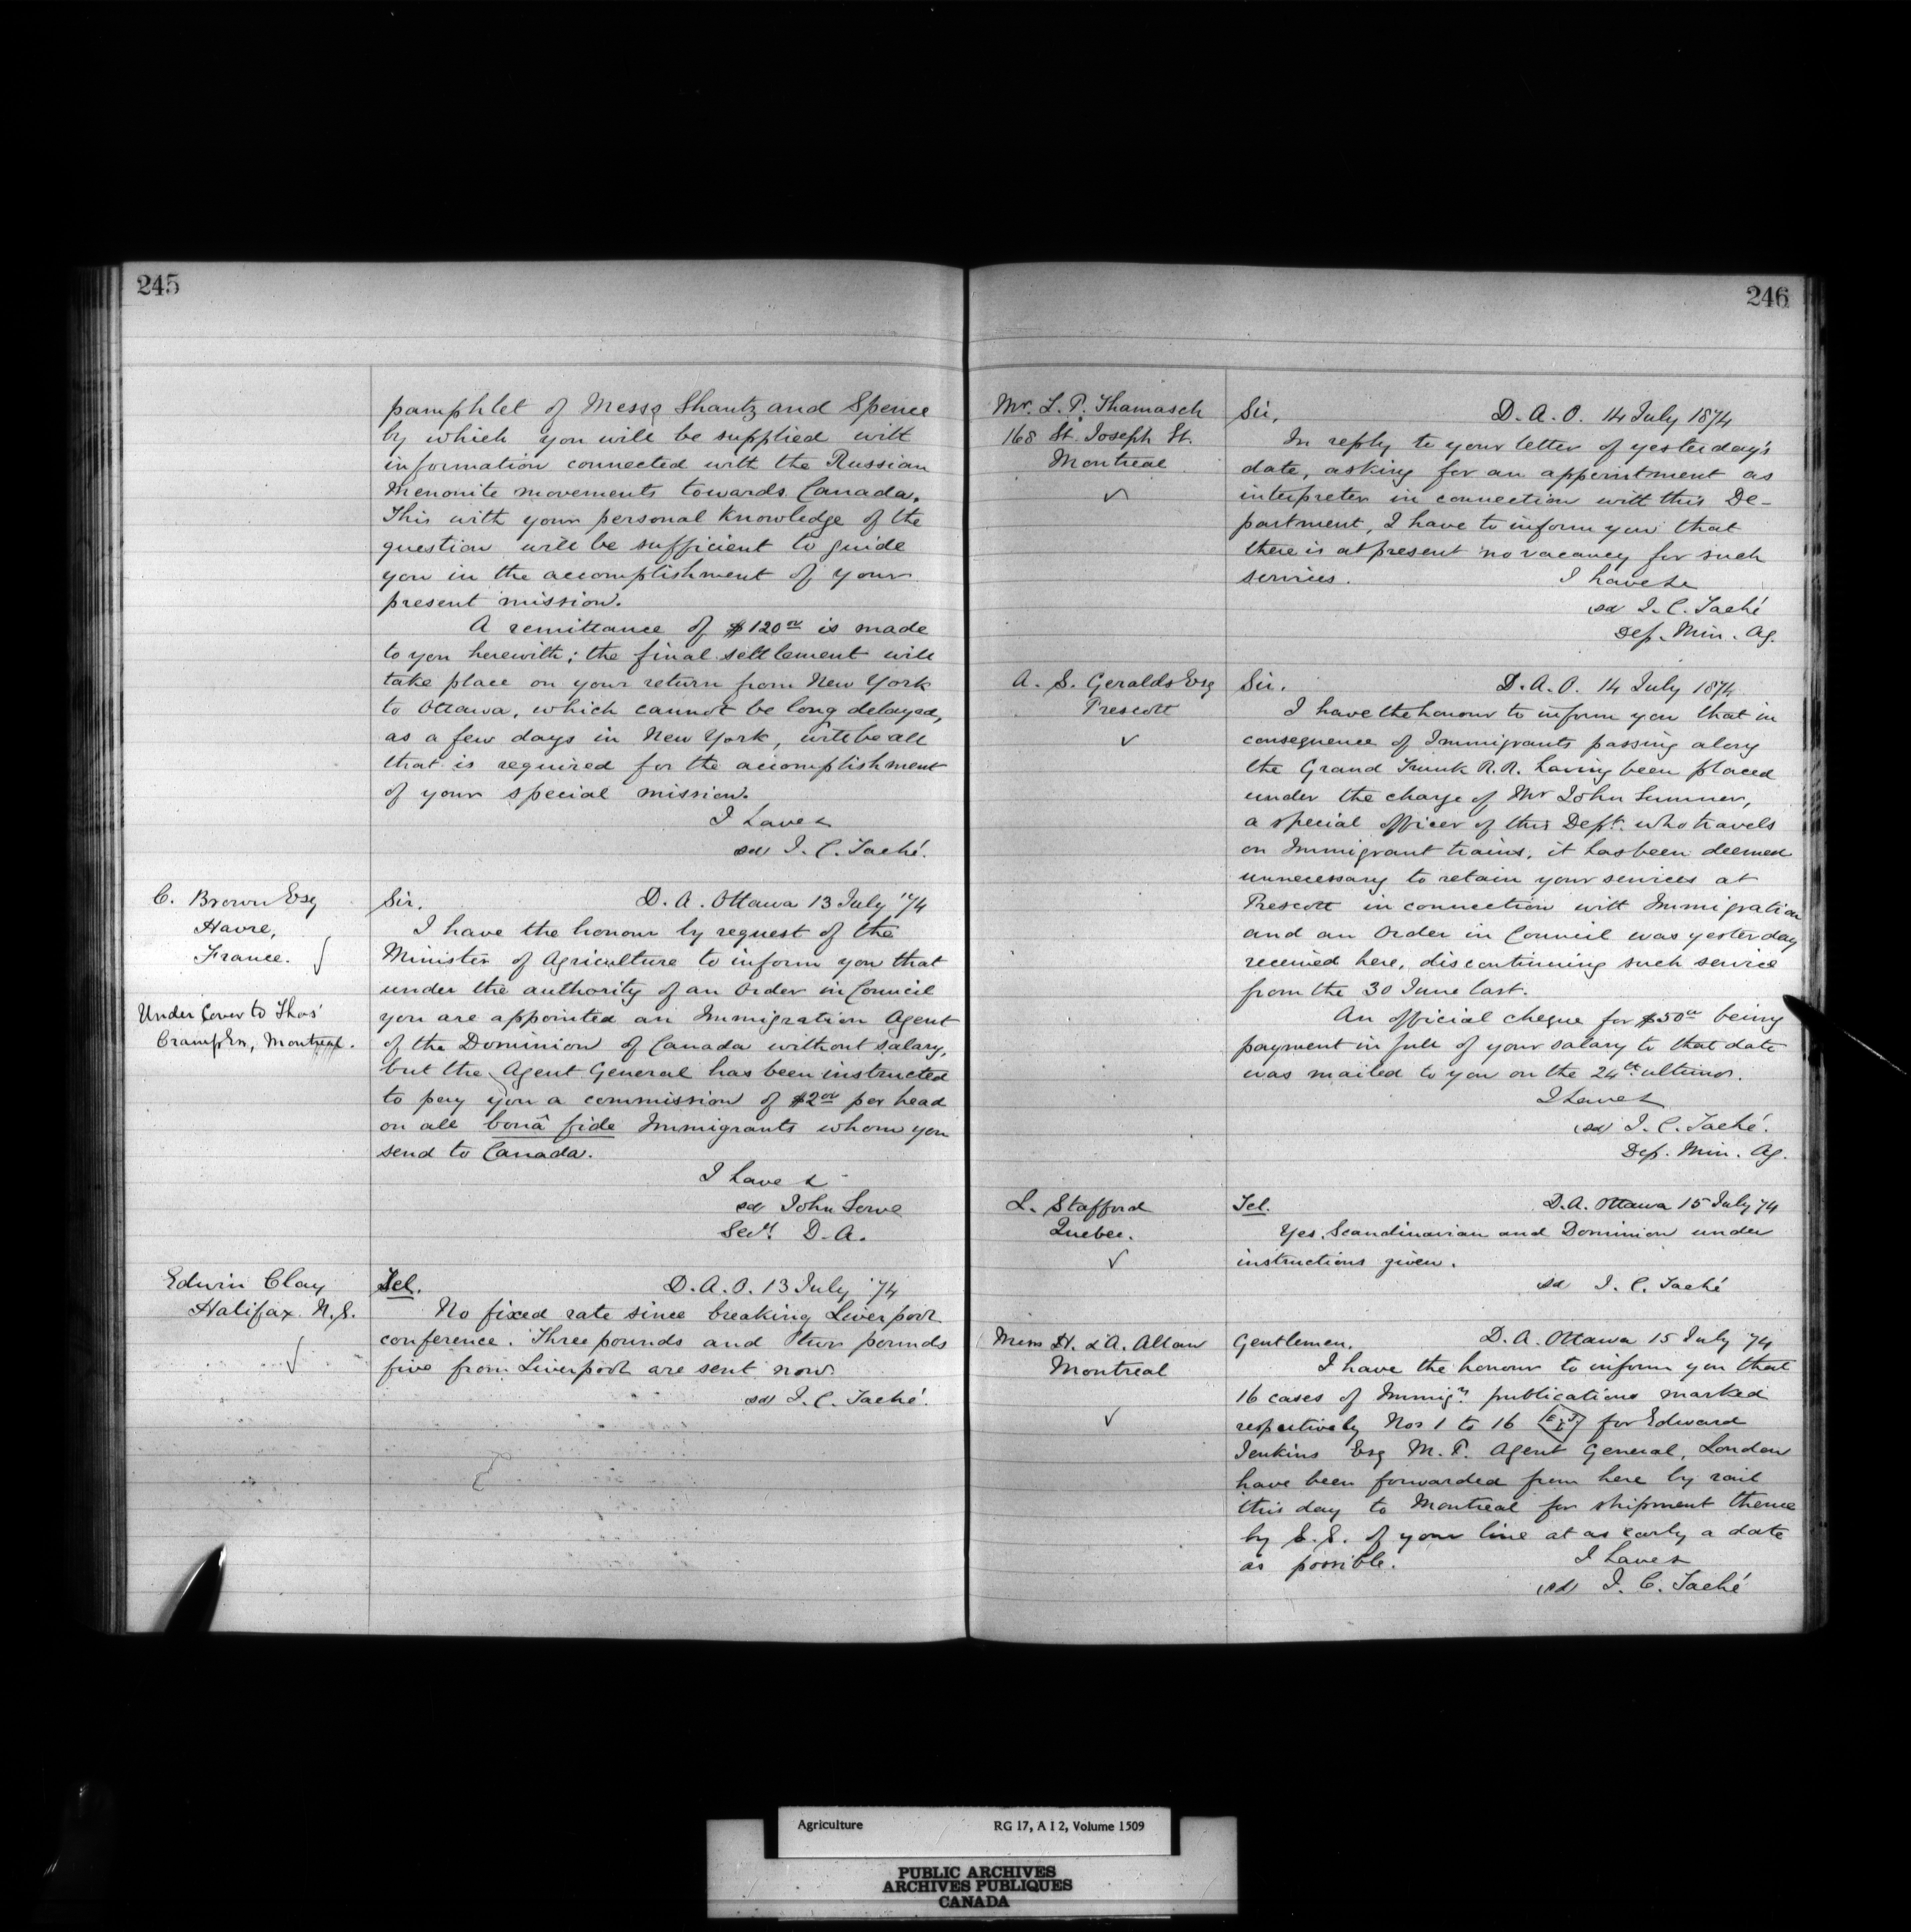 245
pamphlet of Messs Shantz and Spence
by which you will be supplied with
information connected with the Russian
Menonite movements towards Canada.
This with your personal knowledge of the
question will be sufficient to guide
you in the accomplishment of your
present mission.
A remittance of $120.00 is made
to you herewith; the final settlement will
take place on your return from New York
to Ottawa, which cannot be long delayed,
as a few days in New York, will be all
that is required for the accomplishment
of your special mission.
I have &
sd J. C. Taché.
C. Brown Esq
Havre,
France.
Under Cover to Thos
Cramp Esq, Montreal.
Sir. D. A. Ottawa 13 July '74
I have the honour by request of the
Minister of Agriculture to inform you that
under the authority of an Order in Council
you are appointed an Immigration Agent
of the Dominion of Canada without salary,
but the Agent General has been instructed
to pay you a commission of $2.00 per head
on all bonâ fide Immigrants whom you
send to Canada.
I have &
sd John Lowe
Secy. D. A.
Edwin Clay
Halifax. N.S.
Tel. D. A. O. 13 July '74
No fixed rate since breaking Liverpool
conference. Three pounds and two pounds
five from Liverpool are sent now.
sd J. C. Taché.
246
Mr. L. P. Thamasch
168 St. Joseph St.
Montreal
Sir, D. A. O. 14 July 1874
In reply to your letter of yesterday's
date, asking for an appointment as
interpreter in connection with this De-
partment, I have to inform you that
there is at present no vacancy for such
services. I have &
sd J. C. Taché
Dep. Min. Ag.
A. S. Geralds Esq
Prescott
Sir. D. A. O. 14 July 1874
I have the honour to inform you that in
consequence of Immigrants passing along
the Grand Trunk R.R. having been placed
under the charge of Mr John Sumner,
a special officer of this Dept. who travels
on Immigrant trains, it has been deemed
unnecessary to retain your services at
Prescott in connection with Immigration
and an Order in Council was yesterday
received here, discontinuing such service
from the 30 June last.
An official cheque for $50.00 being
payment in full of your salary to that date
was mailed to you on the 24th ultimo.
I have &
sd J. C. Taché.
Dep. Min. Ag.
L. Stafford
Quebec.
Tel. D. A. Ottawa 15 July 74
Yes. Scandinavian and Dominion under
instructions given.
sd J. C. Taché
Messs H. & A. Allan
Montreal
Gentlemen, D. A. Ottawa 15 July 74
I have the honour to inform you that
16 cases of Immign publications marked
respectively Nos 1 to 16 for Edward
Jenkins Esq M. P. Agent General, London
have been forwarded from here by rail
this day to Montreal for shipment thence
by S. S. of your line at as early a date
as possible. I have &
sd J. C. Taché
Agriculture RG 17, A I 2, Volume 1509
PUBLIC ARCHIVES
ARCHIVES PUBLIQUES
CANADA